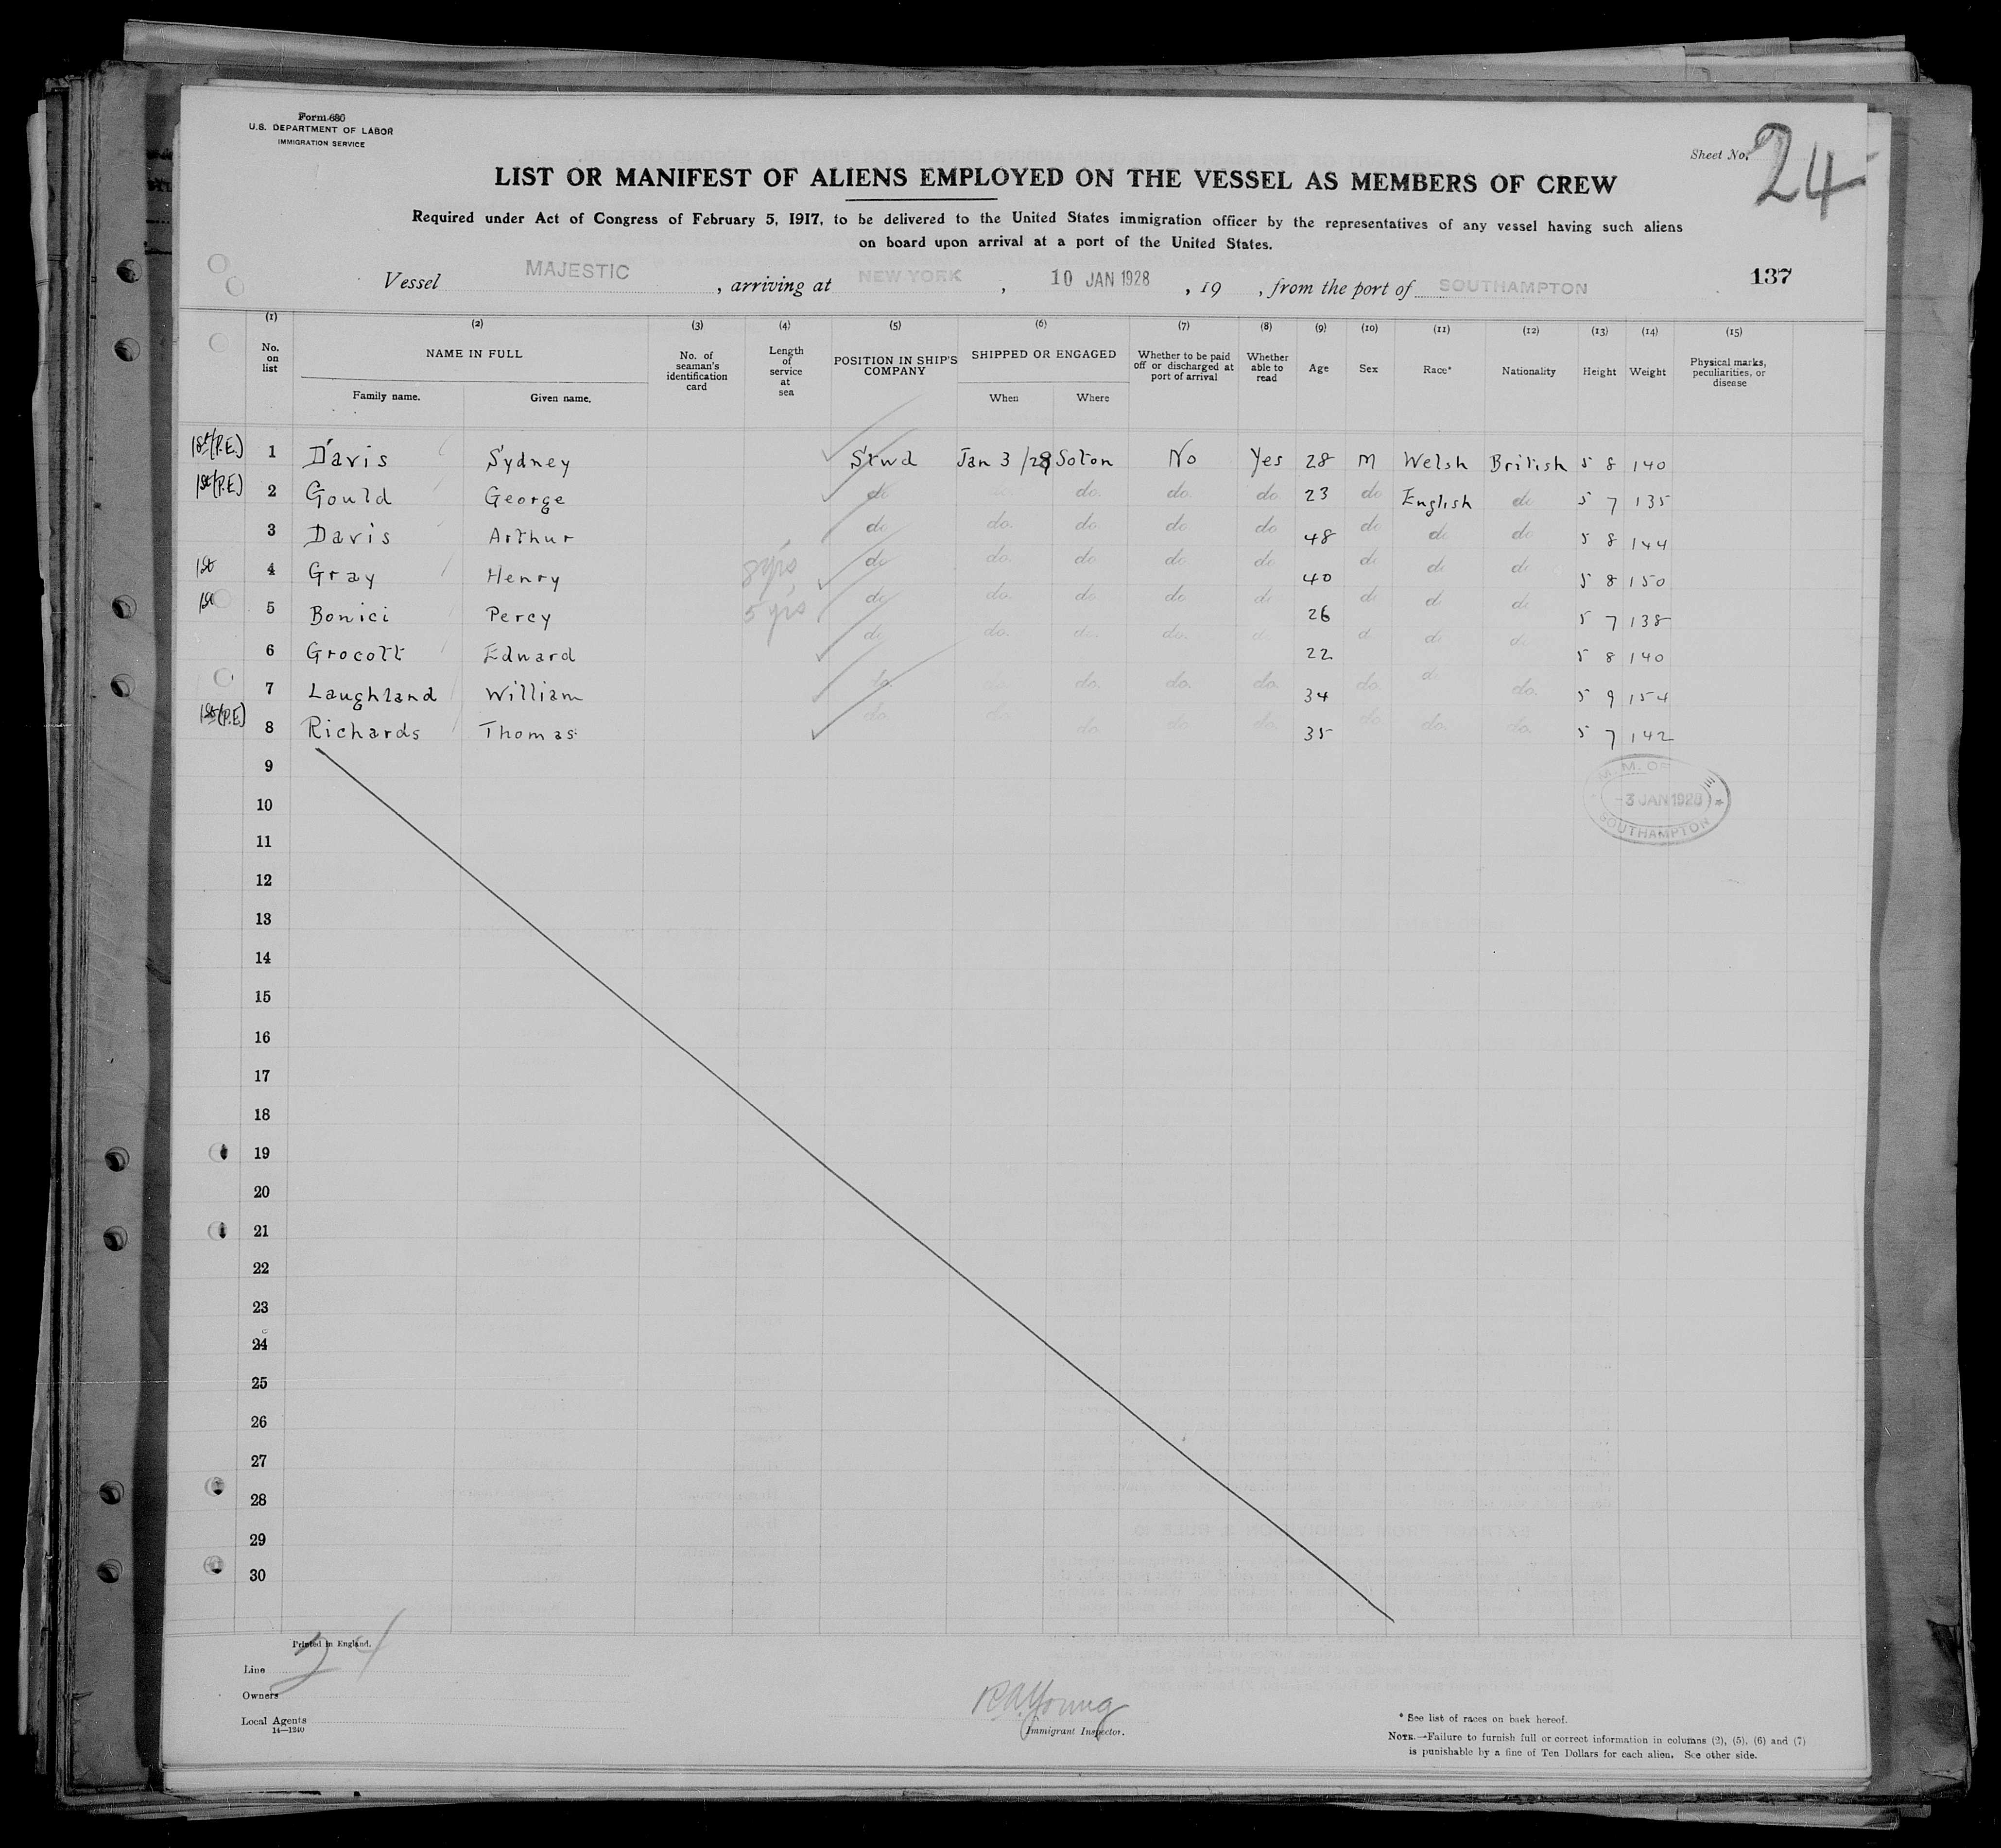 Form 680
U.S. DEPARTMENT OF LABOR
IMMIGRATION SERVICE
Sheet No. 24
LIST OR MANIFEST OF ALIENS EMPLOYED ON THE VESSEL AS MEMBERS OF CREW
Required under Act of Congress of February 5, 1917, to be delivered to the United States immigration officer by the representatives of any vessel having such aliens
on board upon arrival at a port of the United States.
Vessel MAJESTIC , arriving at NEW YORK , 10 JAN 1928 , 19 , from the port of SOUTHAMPTON 137
(1) (2) (3) (4) (5) (6) (7) (8) (9) (10) (11) (12) (13) (14) (15)
No. on list NAME IN FULL Family name. Given name. No. of seaman's identification card Length of service at sea POSITION IN SHIP'S COMPANY SHIPPED OR ENGAGED When Where Whether to be paid off or discharged at port of arrival Whether able to read Age Sex Race* Nationality Height Weight Physical marks, peculiarities, or disease
1st (P.E.) 1 Davis Sydney Stwd Jan 3/28 Soton No Yes 28 M Welsh British 5 8 140
1st (P.E) 2 Gould George do do. do. do 23 do English do 5 7 135
3 Davis Arthur do do. do do do 48 do do do 5 8 144
1st 4 Gray Henry 8 yrs do do do do do 40 do do do 5 8 150
1st 5 Bonici Percy 5 yrs do do. do. do do 26 do do do 5 7 138
6 Grocott Edward do do. do. do. d 22 d d d 5 8 140
7 Laughland William do. do. do. do. 34 do. d do. 5 9 154
1st (P.E) 8 Richards Thomas do. do. do. do. do. 35 do. do. do. 5 7 142
9
10
11
12
13
14
15
16
17
18
19
20
21
22
23
24
25
26
27
28
29
30
M.M. OF
3 JAN 1928
SOUTHAMPTON
Printed in England.
24
Line
Owners
Local Agents
14—1240
R A Young
Immigrant Inspector.
* See list of races on back hereof.
NOTE.—Failure to furnish full or correct information in columns (2), (5), (6) and (7)
is punishable by a fine of Ten Dollars for each alien. See other side.